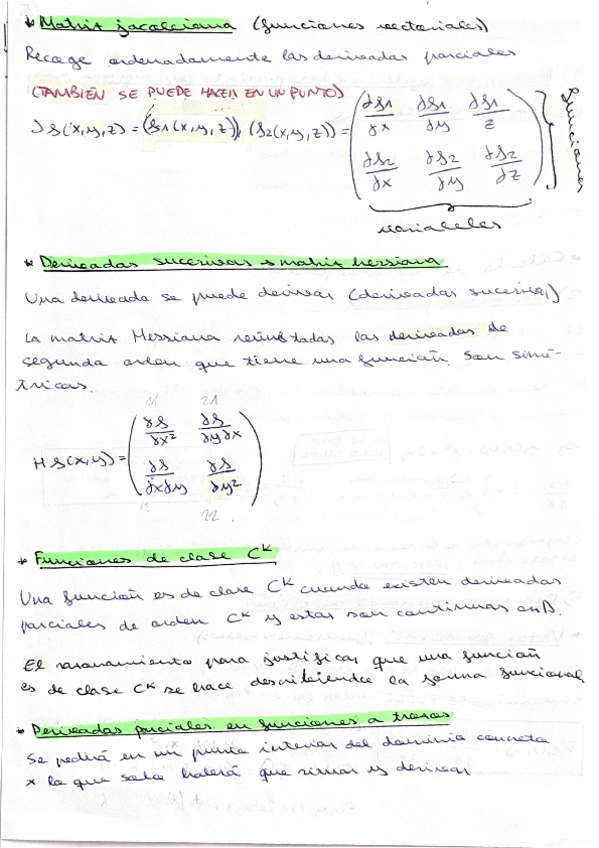 * Matriz jacobiana (funciones vectoriales)
Recoge ordenadamente las derivadas parciales
(TAMBIÉN SE PUEDE HACER EN UN PUNTO)
Jf(x,y,z) = (f1(x,y,z)), (f2(x,y,z)) = ( ∂f1/∂x ∂f1/∂y ∂f1/z
∂f2/∂x ∂f2/∂y ∂f2/∂z )
funciones
variables
* Derivadas sucesivas → matriz hessiana
Una derivada se puede derivar (derivadas sucesivas)
La matriz Hessiana todas las derivadas de
segunda orden que tiene una función. Son simé-
tricas.
11 21
Hf(x,y) = ( ∂f/∂x² ∂f/∂y∂x
∂f/∂x∂y ∂f/∂y² )
12 22
* Funciones de clase Cᴷ
Una función es de clase Cᴷ cuando existen derivadas
parciales de orden Cᴷ y estas son continuas en D.
El razonamiento para justificar que una función
es de clase Cᴷ se hace describiendo la forma funcional
* Derivadas parciales en funciones a trozos
Se pedirá en un punto interior del dominio concreto
x lo que solo habrá que mirar y derivar